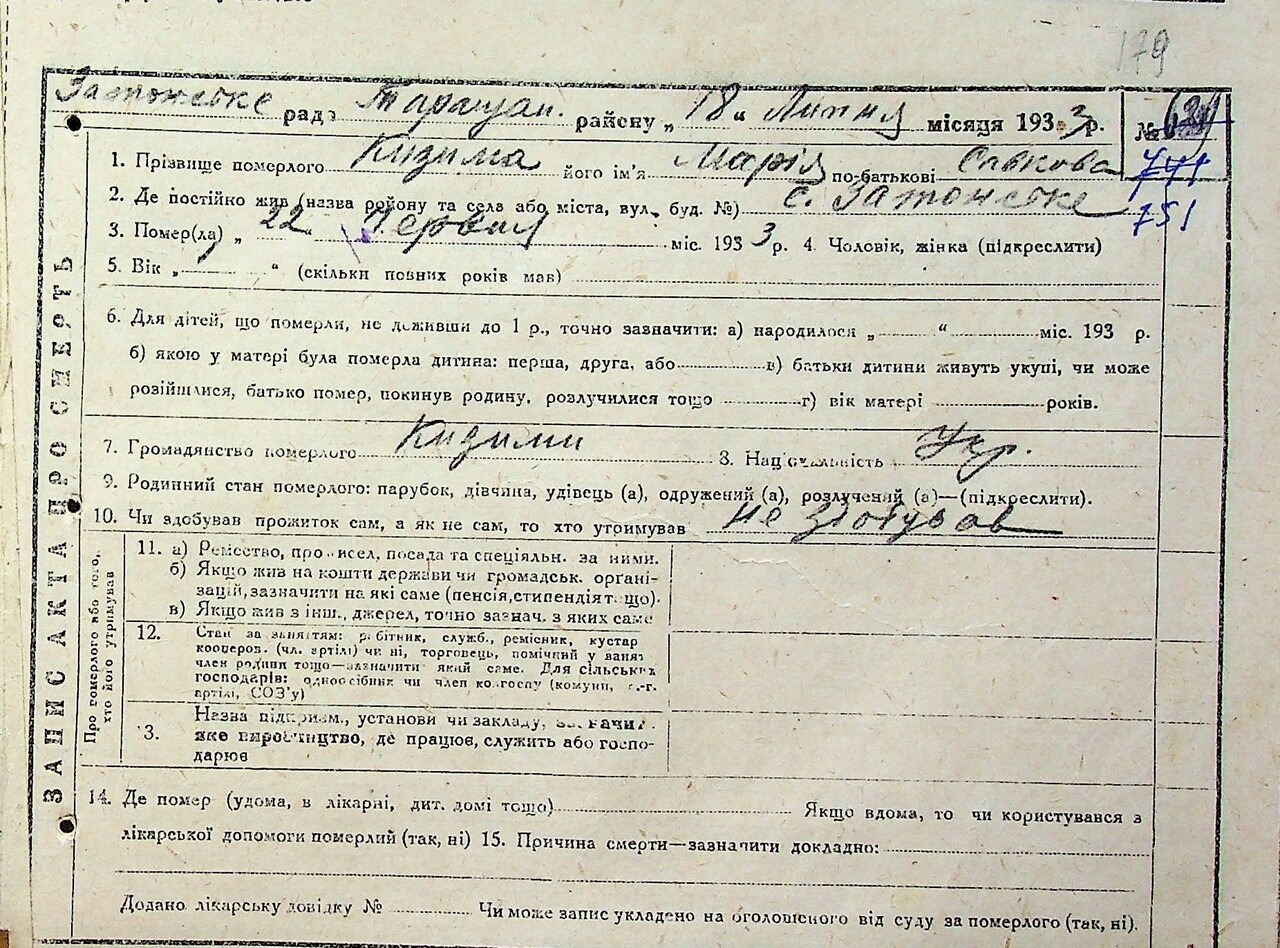 179
Затонське рада Таращан. району „ 18 " Липня місяця 1933 р. №
741
751
1. Прізвище померлого Кизима його ім'я Марія по-батькові Савкова
2. Де постійно жив (назва району та села або міста, вул. буд. №) с. Затонське
3. Помер(ла) „ 22 " Червня міс. 1933 р. 4. Чоловік, жінка (підкреслити)
5. Вік „ " (скільки повних років мав)
6. Для дітей, що померли, не доживши до 1 р., точно зазначити: а) народилося „ " міс. 193 р.
б) якою у матері була померла дитина: перша, друга, або в) батьки дитини живуть укупі, чи може
розійшлися, батько помер, покинув родину, розлучилися тощо г) вік матері років.
7. Громадянство померлого Кизими 8. Національність Укр.
9. Родинний стан померлого: парубок, дівчина, удівець (а), одружений (а), розлучений (а)—(підкреслити).
10. Чи здобував прожиток сам, а як не сам, то хто утримував не здобував
ЗАПИС АКТА ПРО СМЕРТЬ
Про померлого або того,
хто його утримував
11. а) Ремество, промисел, посада та спеціяльн. за ними.
б) Якщо жив на кошти держави чи громадськ. органі-
зацій, зазначити на які саме (пенсія, стипендія тощо).
в) Якщо жив з інш. джерел, точно зазнач. з яких саме
12. Стан за заняттям: робітник, служб., ремісник, кустар
кооперов. (чл. артілі) чи ні, торговець, помічний у занят
член родини тощо—зазначити який саме. Для сільськ
господарів: одноосібник чи член колгоспу (комуни, с.-г.
артілі, СОЗ'у)
13. Назва підприєм., установи чи закладу, зазначит.
яке виробництво, де працює, служить або госпо-
дарює
14. Де помер (удома, в лікарні, дит. домі тощо) Якщо вдома, то чи користувався з
лікарської допомоги померлий (так, ні) 15. Причина смерти—зазначити докладно:
Додано лікарську довідку № Чи може запис укладено на оголошеного від суду за померлого (так, ні).